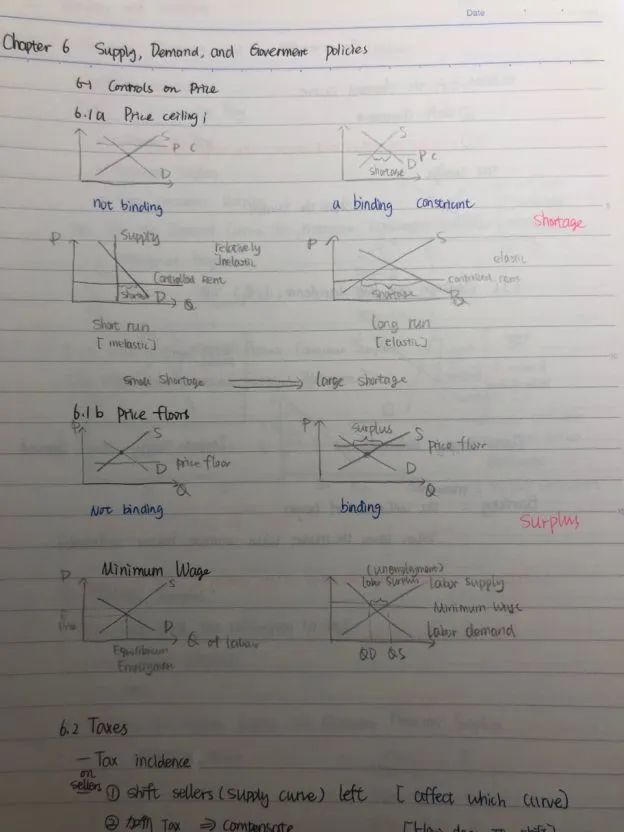 Date
Chapter 6 Supply, Demand, and Goverment policies
6.1 Controls on Price
6.1a Price ceiling
S
P C
D
S
P C
D
shortage
not binding
a binding
Shortage
P
supply
relatively
Inelastic
controlled rent
D
Q
P
S
elastic
controlled rent
shortage
D
short run
long run
[elastic]
small shortage
large shortage
6.1b Price floors
P
S
price floor
D
Q
P
surplus
S
price floor
D
Q
Not binding
binding
surplus
P
Minimum Wage
S
D
Q of labor
Equilibrium
(unemployment)
labor surplus
labor supply
Minimum wage
labor demand
QD QS
6.2 Taxes
— Tax incidence
on
sellers
① shift sellers (supply curve) left [affect which curve]
② Tax ⇒